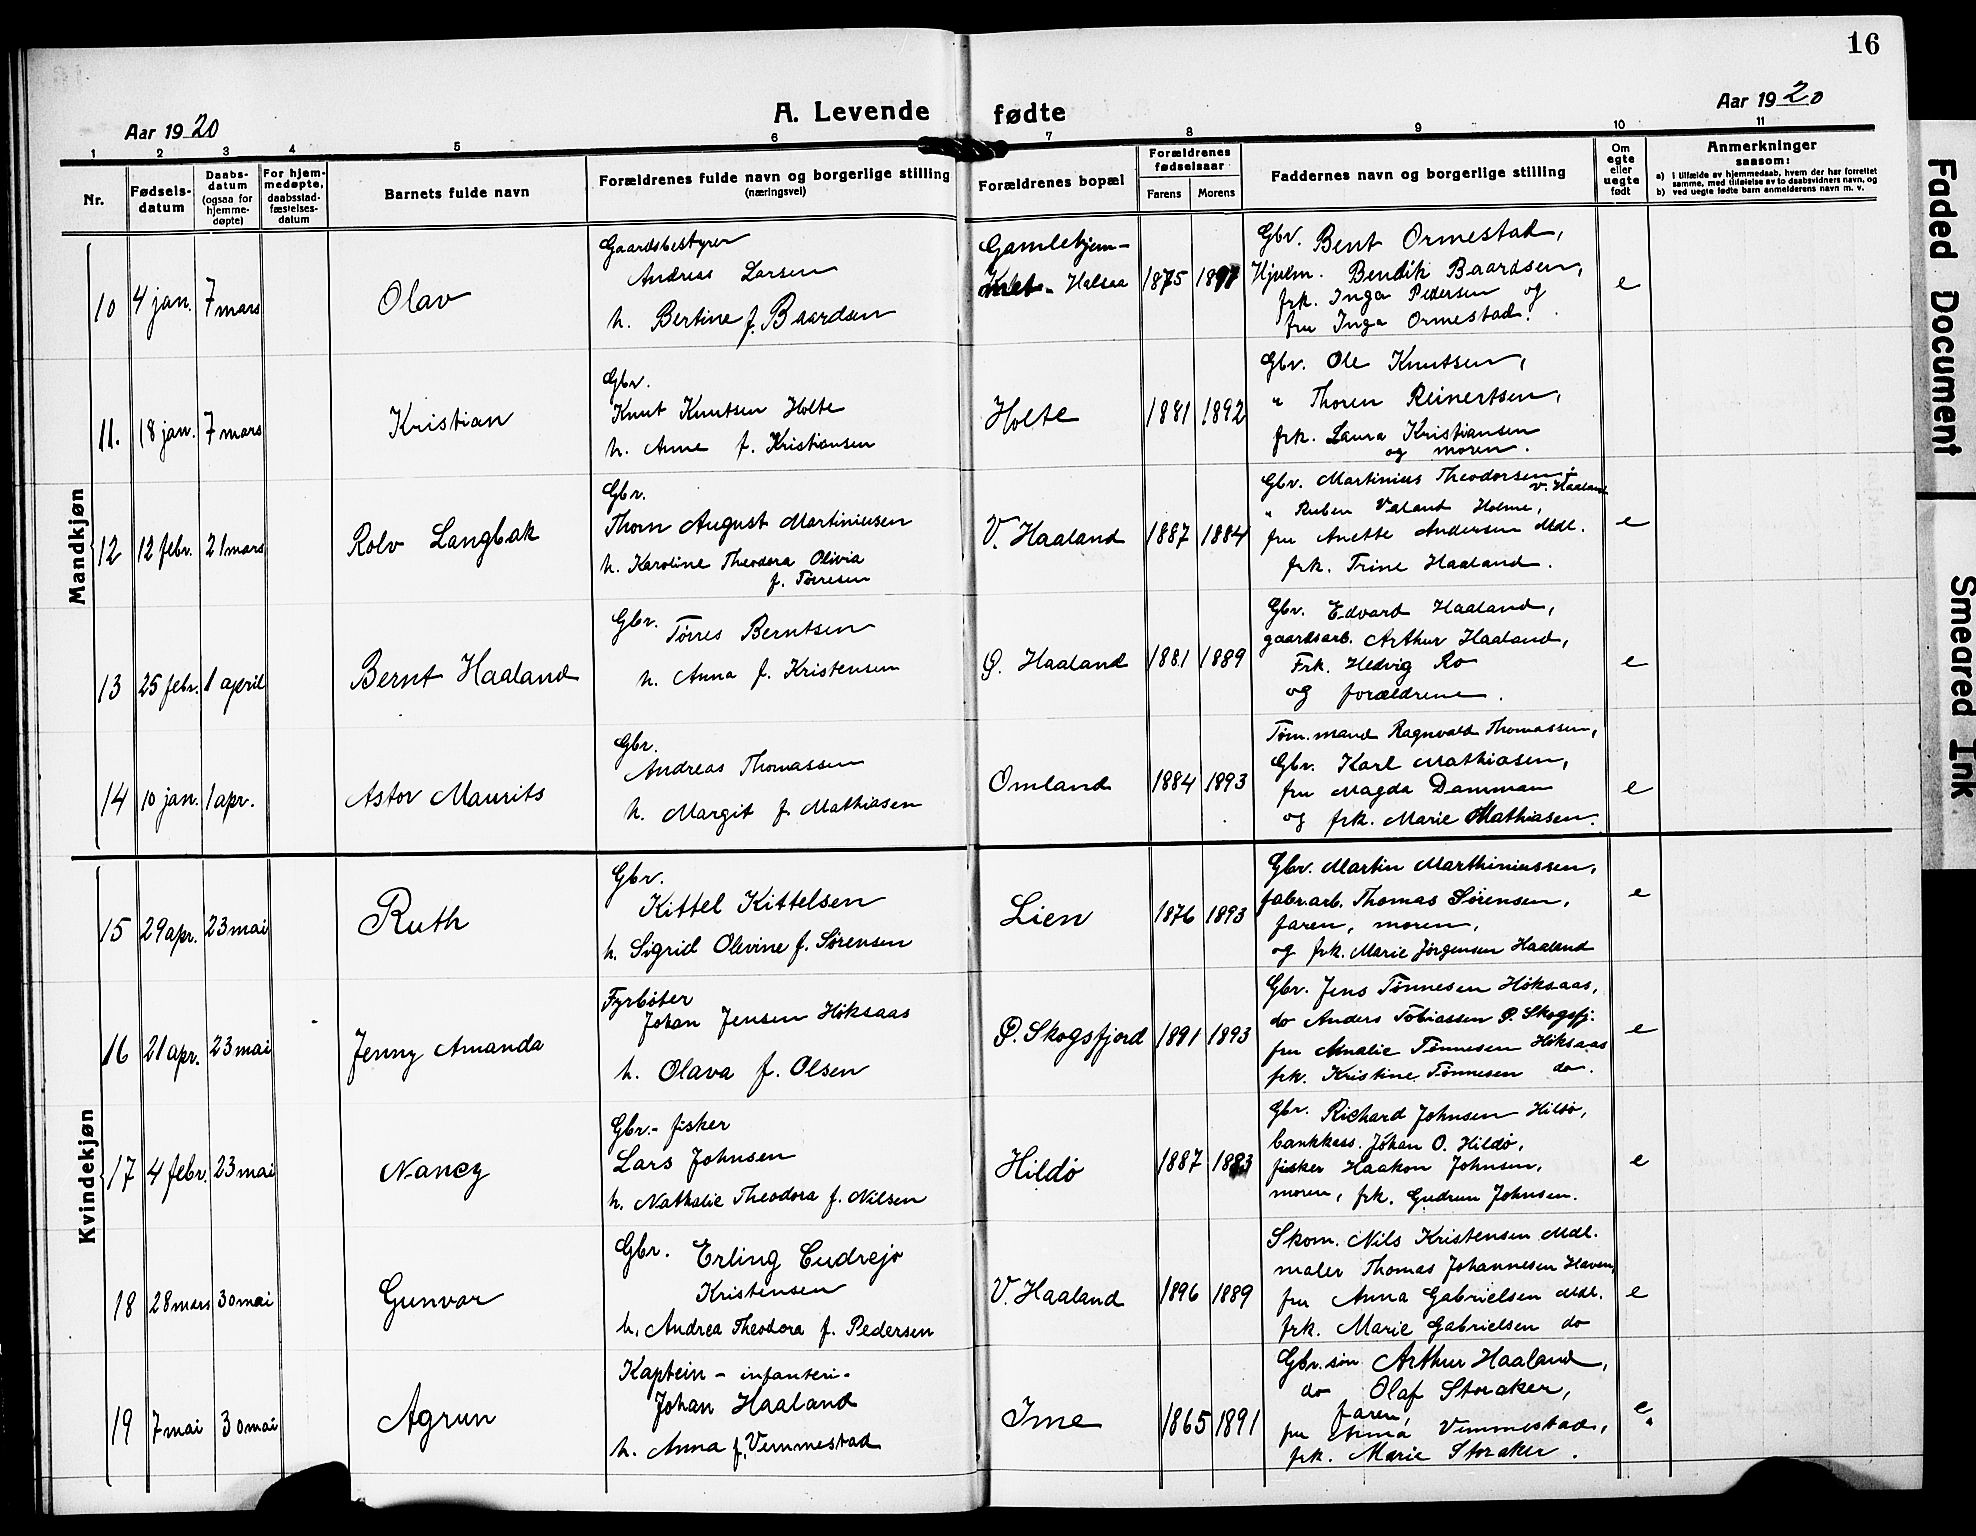 16
A. Levende fødte
Aar 1920
Aar 1920
1 2 3 4 5 6 7 8 9 10 11
Nr.
Fødsels-
datum
Daabs-
datum
(ogsaa for
hjemme-
døpte)
For hjem-
medøpte,
daabsstad-
fæstelses-
datum
Barnets fulde navn
Forældrenes fulde navn og borgerlige stilling
(næringsvei)
Forældrenes bopæl
Forældrenes
fødselsaar
Farens Morens
Faddernes navn og borgerlige stilling
Om
egte
eller
uegte
født
Anmerkninger
saasom:
a) i tilfælde av hjemmedaab, hvem der har forrettet
samme, med tilføielse av to daabsvidners navn, og
b) ved uegte fødte barn anmelderens navn m. v.
Mandkjøn
10 4 jan. 7 mars
Olav
Gaardsbestyrer
Andreas Larsen
h. Bertine f. Baardsen
Gamlehjem-
met - Halsaa
1875 1897
Gbr. Bent Ormestad,
Hjulm. Bendik Baardsen,
frk. Inga Pedersen og
fru Inga Ormestad.
e
11. 18 jan. 7 mars
Kristian
Gbr.
Knut Knutsen Holte
h. Anne f. Kristiansen
Holte
1881 1892
Gbr. Ole Knutsen,
" Thoren Reinertsen,
frk. Laura Kristiansen
og moren.
12 12 febr. 21 mars
Rolv Langbak
Gbr.
Thorn August Martiniusen
h. Karoline Theodora Olivia
f. Tørresen
V. Haaland
1887 1884
Gbr. Martinius Theodorsen
V. Haaland
" Ruben Valand Holme,
fru Anette Andersen Mdl.
frk. Trine Haaland.
e
13 25 febr. 1 april
Bernt Haaland
Gbr. Tørres Berntsen
h. Anna f. Kristensen
Ø. Haaland
1881 1889
Gbr. Edvard Haaland,
gaardsarb. Arthur Haaland,
Frk. Hedvig Ro
og forældrene.
e
14 10 jan. 1 apr.
Astor Maurits
Gbr.
Andreas Thomassen
h. Margit f. Mathiasen
Omland
1884 1893
Tøm.mand Ragnvald Thomassen,
Gbr. Karl Mathiasen,
fru Magda Damman
og frk. Marie Mathiasen.
e
Kvindekjøn
15 29 apr. 23 mai
Ruth
Gbr.
Kittel Kittelsen
h. Sigrid Olevine f. Sørensen
Lien
1876 1893
Gbr. Martin Marthiniussen,
fabr.arb. Thomas Sørensen,
faren, moren,
og frk. Marie Jørgensen Haaland
e
16 21 apr. 23 mai
Jenny Amanda
Fyrbøter
Johan Jensen Høksaas
h. Olava f. Olsen
Ø. Skogsfjord
1891 1893
Gbr. Jens Tønnesen Høksaas,
do Anders Tobiassen Ø. Skogsfj.
fru Amalie Tønnesen Høksaas
frk. Kristine Tønnesen do.
e
17 4 febr. 23 mai
Nancy
Gbr. - fisker
Lars Johnsen
h. Nathalie Theodora f. Nilsen
Hildø
1887 1883
Gbr. Richard Johnsen Hildø,
bankkass. Johan O. Hildø,
fisker Haakon Johnsen,
moren, frk. Gudrun Johnsen.
e
18 28 mars 30 mai
Gunvor
Gbr. Erling Cudrejo
Kristensen
h. Andrea Theodora f. Pedersen
V. Haaland
1896 1889
Skom. Nils Kristensen Mdl.
maler Thomas Johannesen Haven,
fru Anna Gabrielsen Mdl.
frk. Marie Gabrielsen do
e
19 7 mai 30 mai
Agrun
Kaptein - infanteri-
Johan Haaland
h. Anna f. Vemmestad
Ime
1865 1891
Gbr.søn Arthur Haaland,
do Olaf Storaker,
faren,
fru Vemmestad,
frk. Marie Storaker.
e
Faded Document
Smeared Ink